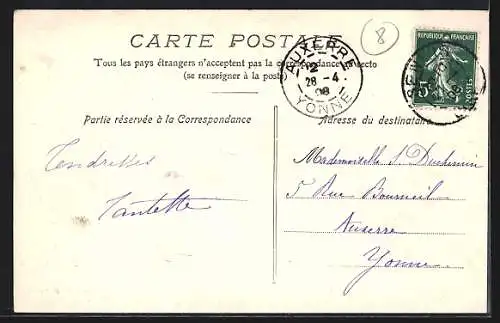 CARTE POSTALE
8
Tous les pays étrangers n'acceptent pas la correspondance au recto
(se renseigner à la poste)
AUXERRE
28 -4
08
YONNE
REPUBLIQUE FRANÇAISE
5c
POSTES
Partie réservée à la Correspondance
Adresse du destinataire
Tendresses
Tantette
Mademoiselle S. Duchemin
5 Rue Bourneil
Auxerre
Yonne